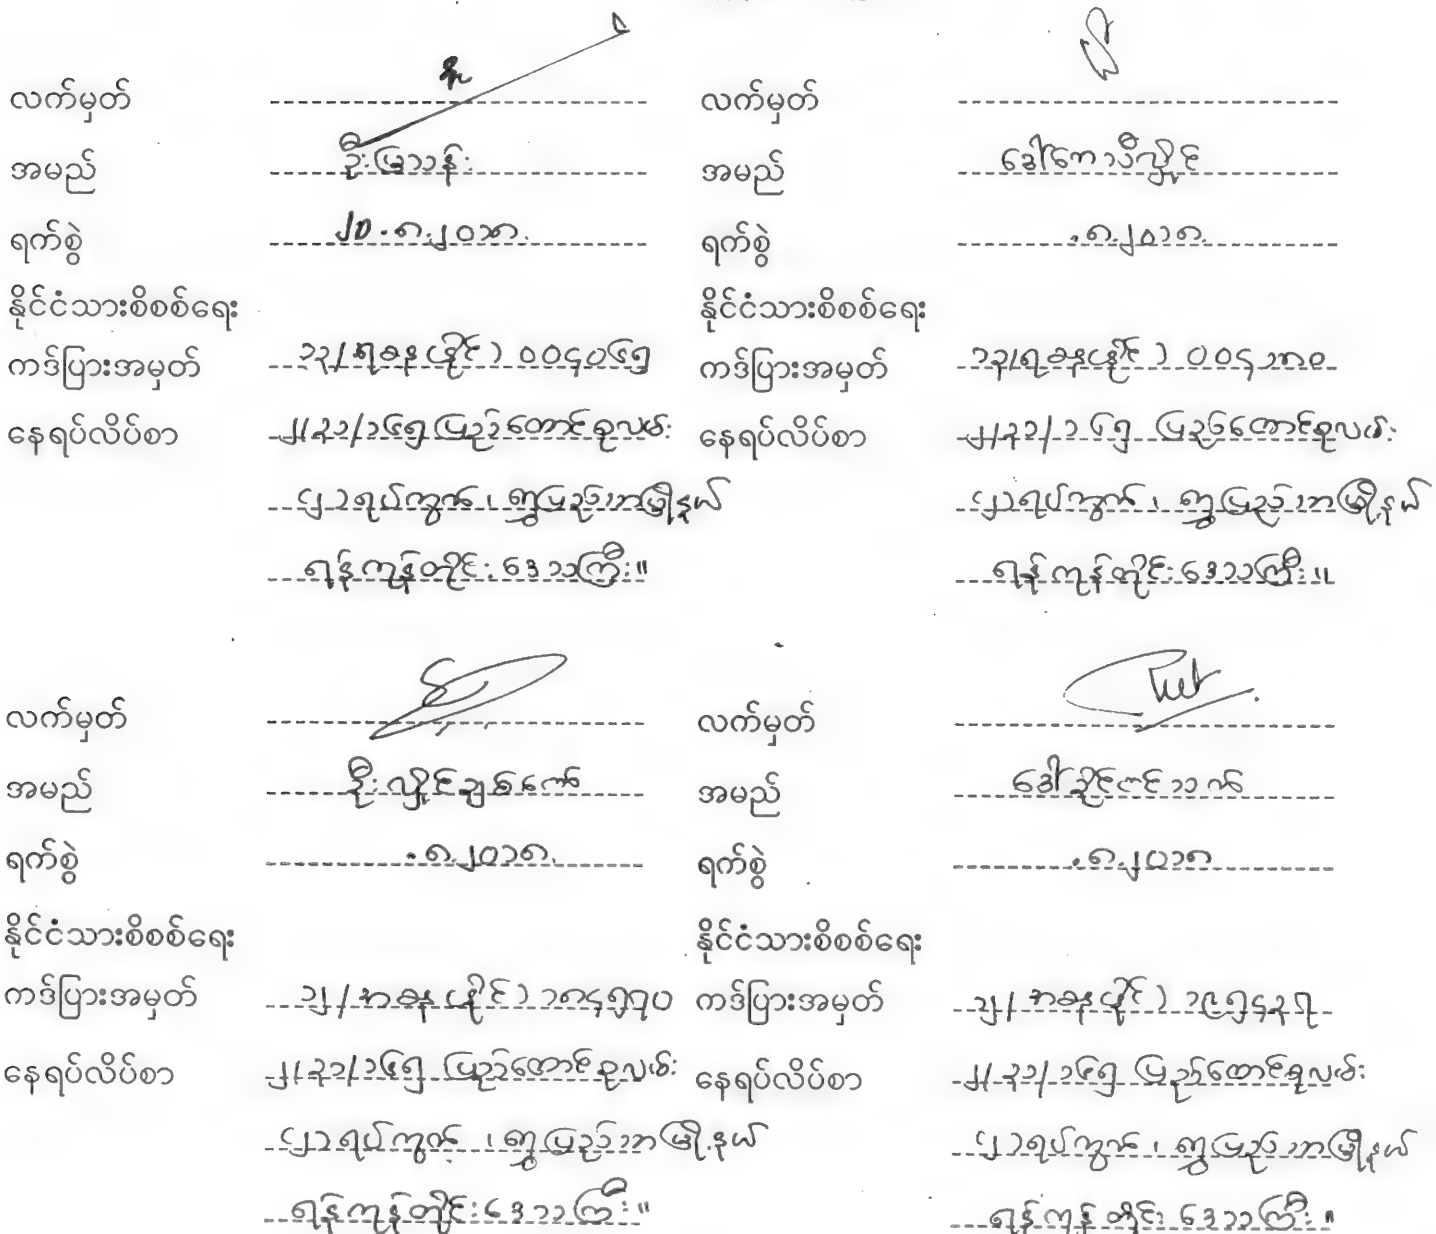 လက်မှတ်
အမည် ဦးမြသန်း
ရက်စွဲ ၂၀.၈.၂၀၁၈.
နိုင်ငံသားစိစစ်ရေး
ကဒ်ပြားအမှတ် ၁၃/ရစန(နိုင်) ၀၀၄၀၆၅
နေရပ်လိပ်စာ ၂/၃၁/၁၆၅ ပြည်ထောင်စုလမ်း
(၂)ရပ်ကွက်၊ ရွှေပြည်သာမြို့နယ်
ရန်ကုန်တိုင်းဒေသကြီး။
လက်မှတ်
အမည် ဒေါ်ကေသီလှိုင်
ရက်စွဲ .၈.၂၀၁၈.
နိုင်ငံသားစိစစ်ရေး
ကဒ်ပြားအမှတ် ၁၃/ရစန(နိုင်) ၀၀၄၁၈၀
နေရပ်လိပ်စာ ၂/၃၁/၁၆၅ ပြည်ထောင်စုလမ်း
(၂)ရပ်ကွက်၊ ရွှေပြည်သာမြို့နယ်
ရန်ကုန်တိုင်းဒေသကြီး။
လက်မှတ်
အမည် ဦးလှိုင်ချစ်ကော်
ရက်စွဲ .၈.၂၀၁၈.
နိုင်ငံသားစိစစ်ရေး
ကဒ်ပြားအမှတ် ၁၂/အစန(နိုင်) ၁၈၄၅၇၀
နေရပ်လိပ်စာ ၂/၃၁/၁၆၅ ပြည်ထောင်စုလမ်း
(၂)ရပ်ကွက်၊ ရွှေပြည်သာမြို့နယ်
ရန်ကုန်တိုင်းဒေသကြီး။
လက်မှတ်
အမည် ဒေါ်ခိုင်ငင်သက်
ရက်စွဲ .၈.၂၀၁၈
နိုင်ငံသားစိစစ်ရေး
ကဒ်ပြားအမှတ် ၁၂/အစန(နိုင်) ၁၉၅၄၃၇
နေရပ်လိပ်စာ ၂/၃၁/၁၆၅ ပြည်ထောင်စုလမ်း
(၂)ရပ်ကွက်၊ ရွှေပြည်သာမြို့နယ်
ရန်ကုန်တိုင်းဒေသကြီး။